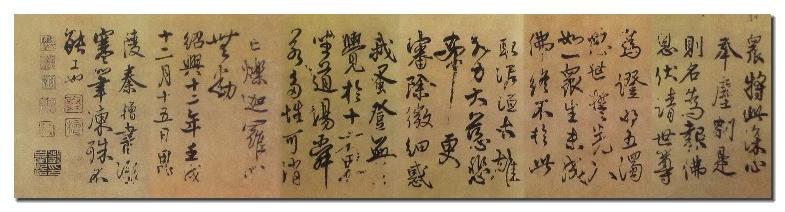 衆將此深心
奉塵剎是
則名為報佛
恩伏請世尊
為證明五濁
惡世誓先入
如一衆生未成
佛終不於此
取泥洹大雄
大力大慈悲
希更
審除微細惑
我蚤登無上
覺於十方界
坐道場舜
若多性可消
亡爍迦羅心
無動
紹興十二年壬戌
十二月十五日
陵秦檜書
寒筆凍殊不
能工也